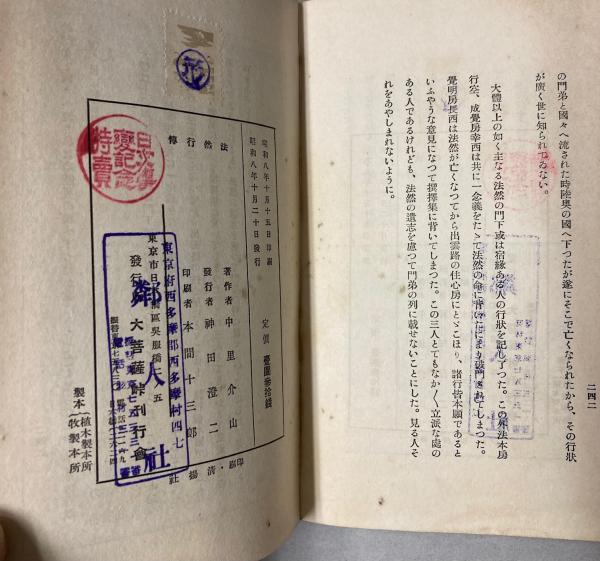 二四二
の門弟と國々へ流された時陸奥の國へ下つたが遂にそこで亡くなられたから、その行狀
が廣く世に知られてゐない。
大體以上の如く主なる法然の門下或は宿緣ある人の行狀を記し了つた。この外法本房
行空、成覺房幸西は共に一念義をたてゝ法然の命に背いたにより破門されてしまつた。
覺明房長西は法然が亡くなつてから出雲路の住心房にとゞこほり、諸行皆本願であると
いふやうな意見になつて撰擇集に背いてしまつた。この三人とてもなか〳〵立派な處の
ある人であるけれども、法然の遺志を慮つて門弟の列に載せないことにした。見る人そ
れをあやしまれないように。
昭和八年十月十五日印刷
昭和八年十月二十日發行
定價 壹圓參拾錢
法然行傳
著作者 中里介山
發行者 神田澄二
印刷者 本間十三郎
印刷・清揚社
東京府西多摩郡西多摩村四七
東京市日本橋區吳服橋二ノ五
發行所 大菩薩峠刊行會
製本 植木製本所
一牧製本所
隣人社
特賣